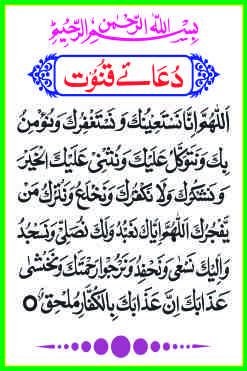 بِسْمِ اللهِ الرَّحْمٰنِ الرَّحِيْمِ
دُعائے قنُوت
اَللّٰهُمَّ اِنَّا نَسْتَعِيْنُكَ وَ نَسْتَغْفِرُكَ وَنُؤْمِنُ
بِكَ وَنَتَوَكَّلُ عَلَيْكَ وَنُثْنِيْ عَلَيْكَ الْخَيْرَ
وَ نَشْكُرُكَ وَلَا نَكْفُرُكَ وَنَخْلَعُ وَنَتْرُكُ مَنْ
يَّفْجُرُكَ اَللّٰهُمَّ اِيَّاكَ نَعْبُدُ وَلَكَ نُصَلِّيْ وَنَسْجُدُ
وَاِلَيْكَ نَسْعٰى وَنَحْفِدُ وَنَرْجُوْا رَحْمَتَكَ وَنَخْشٰى
عَذَابَكَ اِنَّ عَذَابَكَ بِالْكُفَّارِ مُلْحِقٌ ○